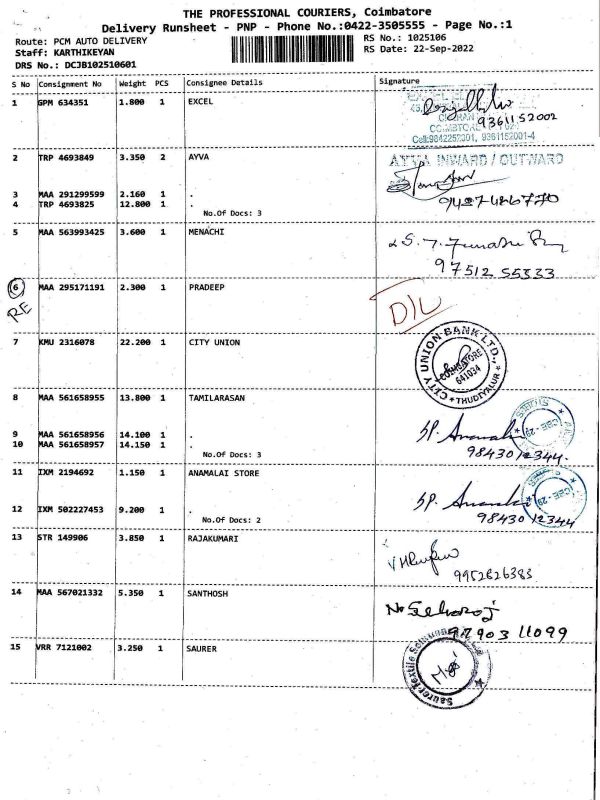 THE PROFESSIONAL COURIERS, Coimbatore
Delivery Runsheet - PNP - Phone No.:0422-3505555 - Page No.:1
Route: PCM AUTO DELIVERY
Staff: KARTHIKEYAN
DRS No.: DCJB102510601
RS No.: 1025106
RS Date: 22-Sep-2022
S No Consignment No Weight PCS Consignee Details Signature
1 GPM 634351 1.800 1 EXCEL
9361152002
COIMBTORE
Cell:9842252001, 9361152001-4
2 TRP 4693849 3.350 2 AYVA
AYVA INWARD / OUTWARD
3 MAA 291299599 2.160 1 .
4 TRP 4693825 12.800 1 .
No.Of Docs: 3
5 MAA 563993425 3.600 1 MENACHI
97512 55333
6 MAA 295171191 2.300 1 PRADEEP
RE
D/L
7 KMU 2316078 22.200 1 CITY UNION
CITY UNION BANK LTD.,
COIMBATORE
641034
* THUDIYALUR *
8 MAA 561658955 13.800 1 TAMILARASAN
9 MAA 561658956 14.100 1 .
10 MAA 561658957 14.150 1 .
No.Of Docs: 3
98430 12344.
11 IXM 2194692 1.150 1 ANAMALAI STORE
12 IXM 502227453 9.200 1 .
No.Of Docs: 2
98430 12344
13 STR 149906 3.850 1 RAJAKUMARI
9952826383
14 MAA 567021332 5.350 1 SANTHOSH
97903 11099
15 VRR 7121002 3.250 1 SAURER
Saurer Textile